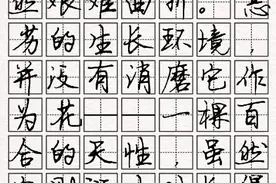 然艰难曲折。恶
劣的生长环境，
并没有消磨它作
为花——一棵百
合的天性，虽然